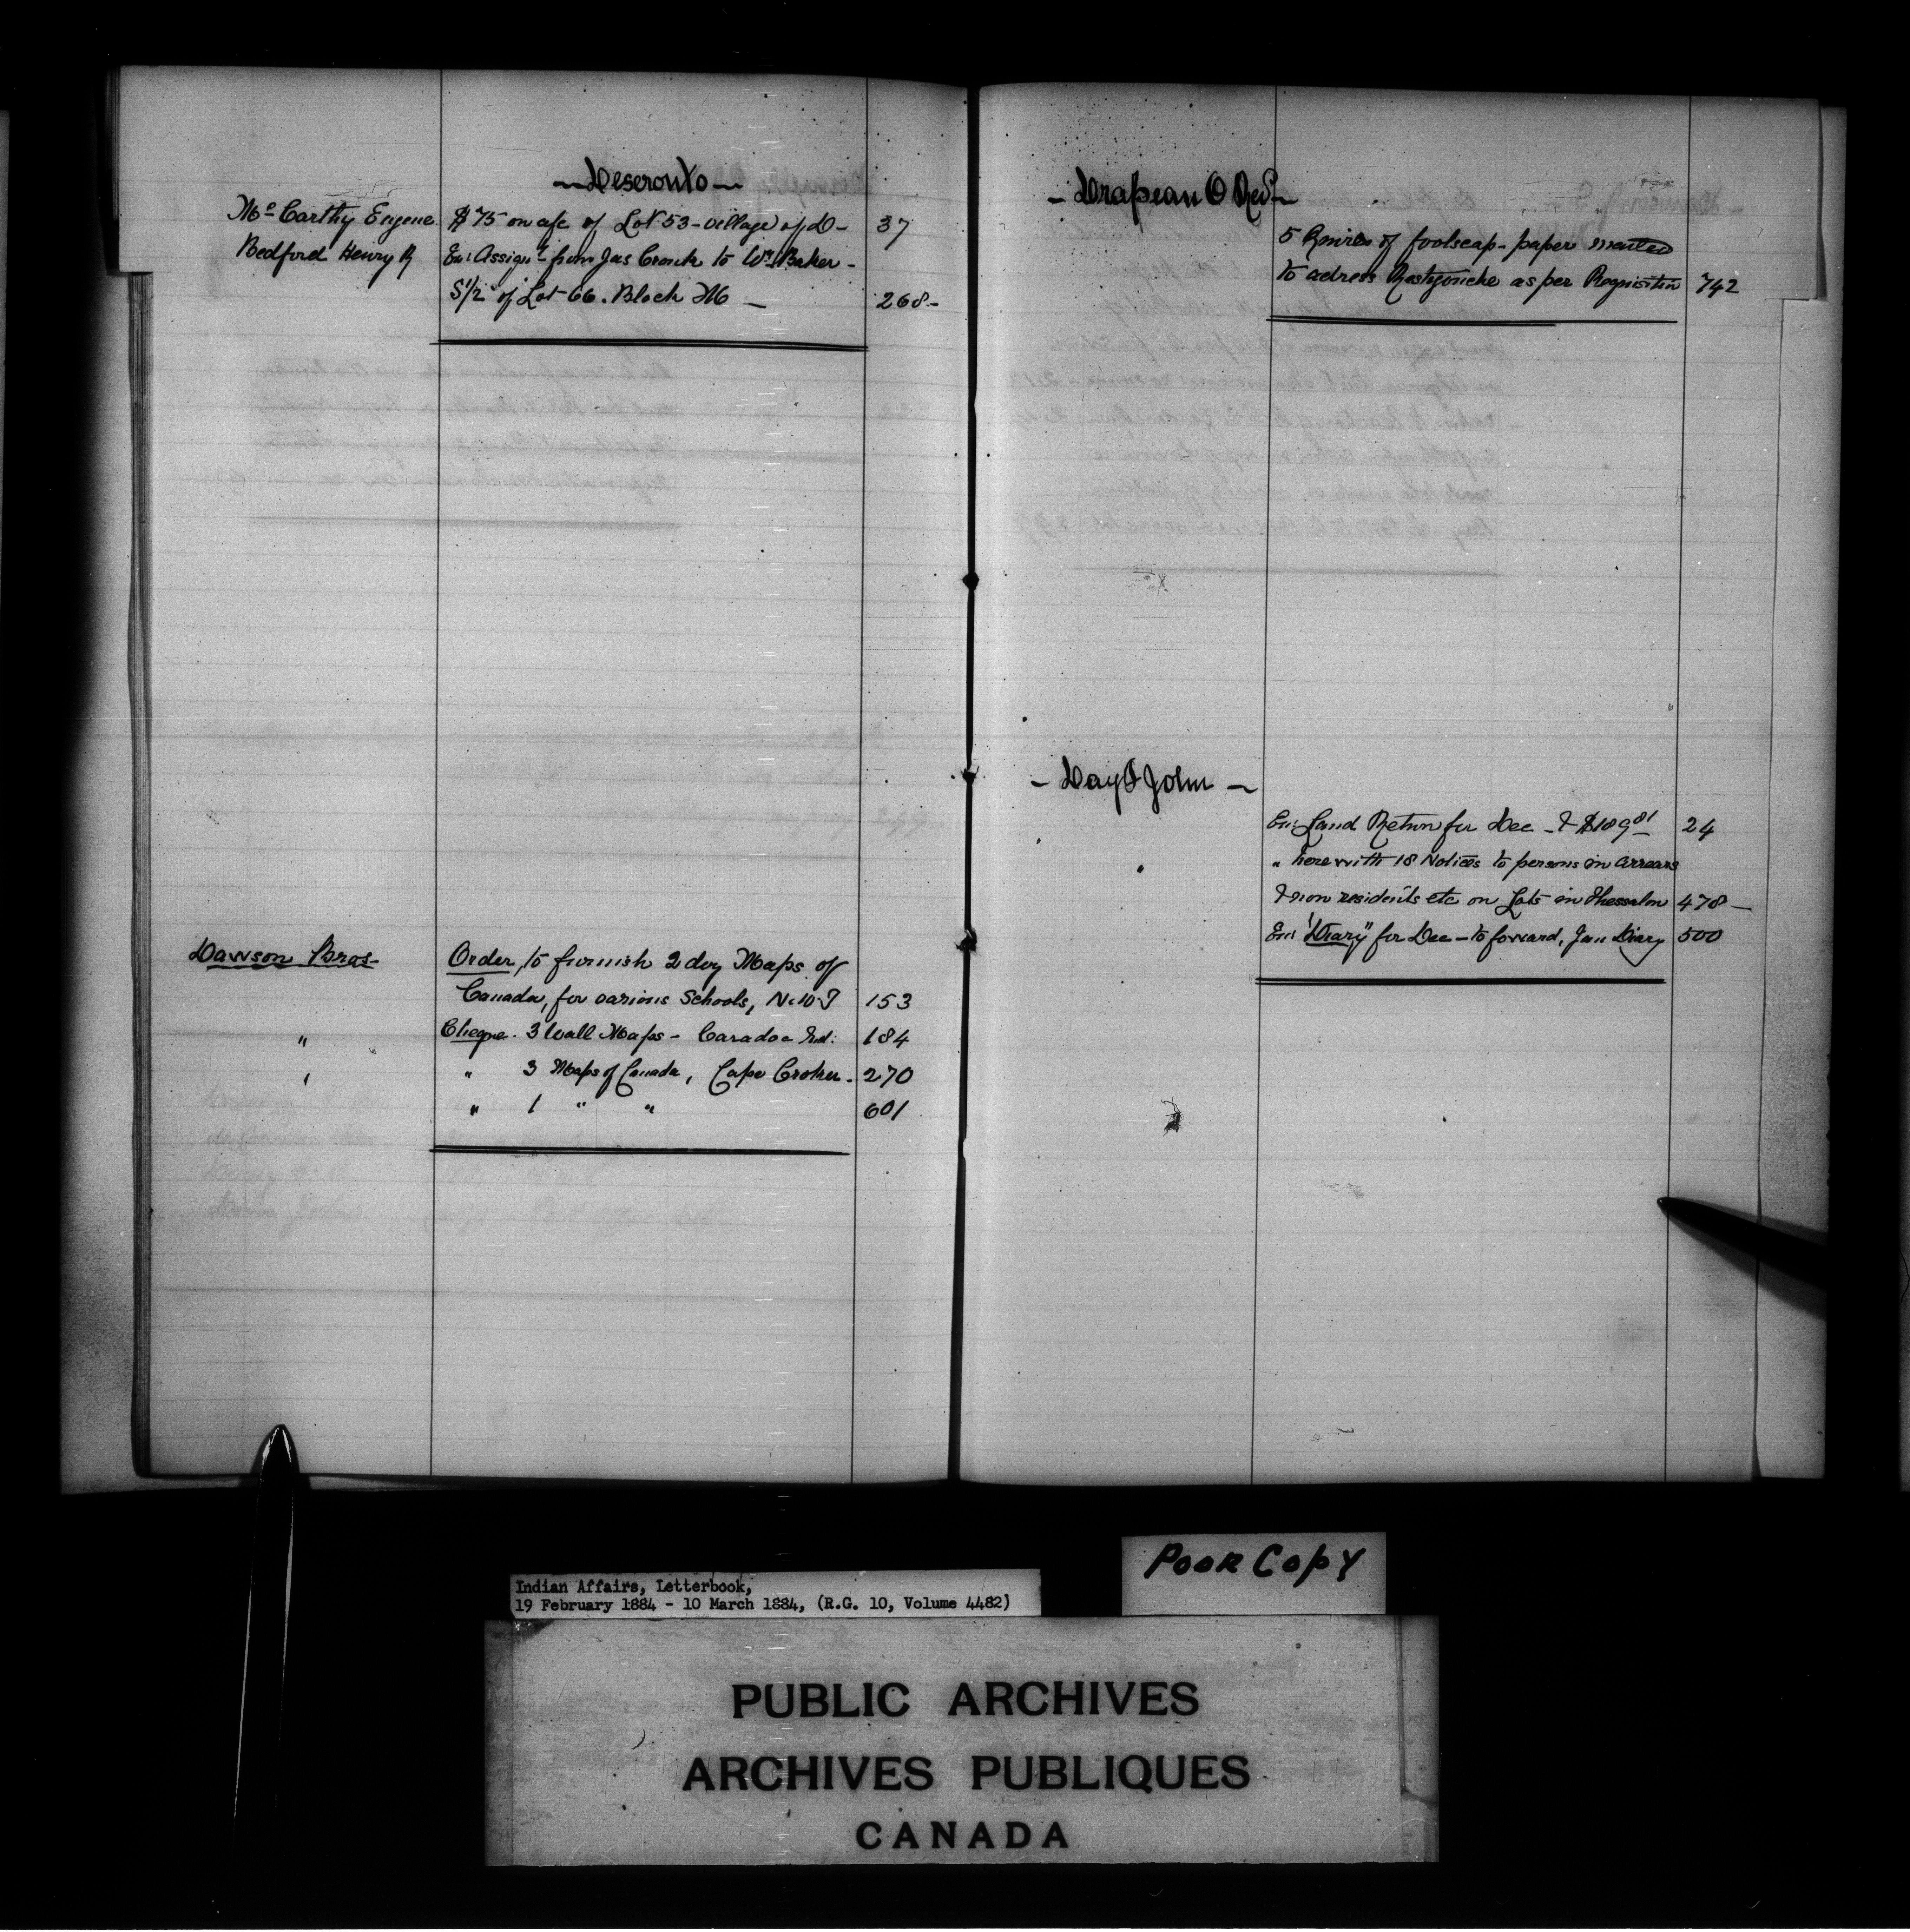 ~ Deseronto ~
Mc Carthy Eugene $75 on a/c of Lot 53 - village of D - 37
Bedford Henry R Enc Assignt from Jas Cronk to Wm Baker -
S1/2 of Lot 66. Block M - 268 -
Dawson Bros - Order, to furnish 2 doz Maps of
Canada, for various Schools, 153
" Cheque. 3 Wall Maps - Caradoc Ind: 184
" " 3 Maps of Canada, Cape Croker. 270
" 1 " " 601
- Drapeau O Revd -
5 Quires of foolscap paper
to adress Restigouche as per Requisition 742
- Day John -
Enc: Land Return for Dec - & $189 81 24
" herewith 18 Notices to persons in arrears
& non residents etc on Lots in Thessalon 478 -
Enc "Diary" for Dec - to forward, Jan Diary 500
Poor Copy
Indian Affairs, Letterbook,
19 February 1884 - 10 March 1884, (R.G. 10, Volume 4482)
PUBLIC ARCHIVES
ARCHIVES PUBLIQUES
CANADA